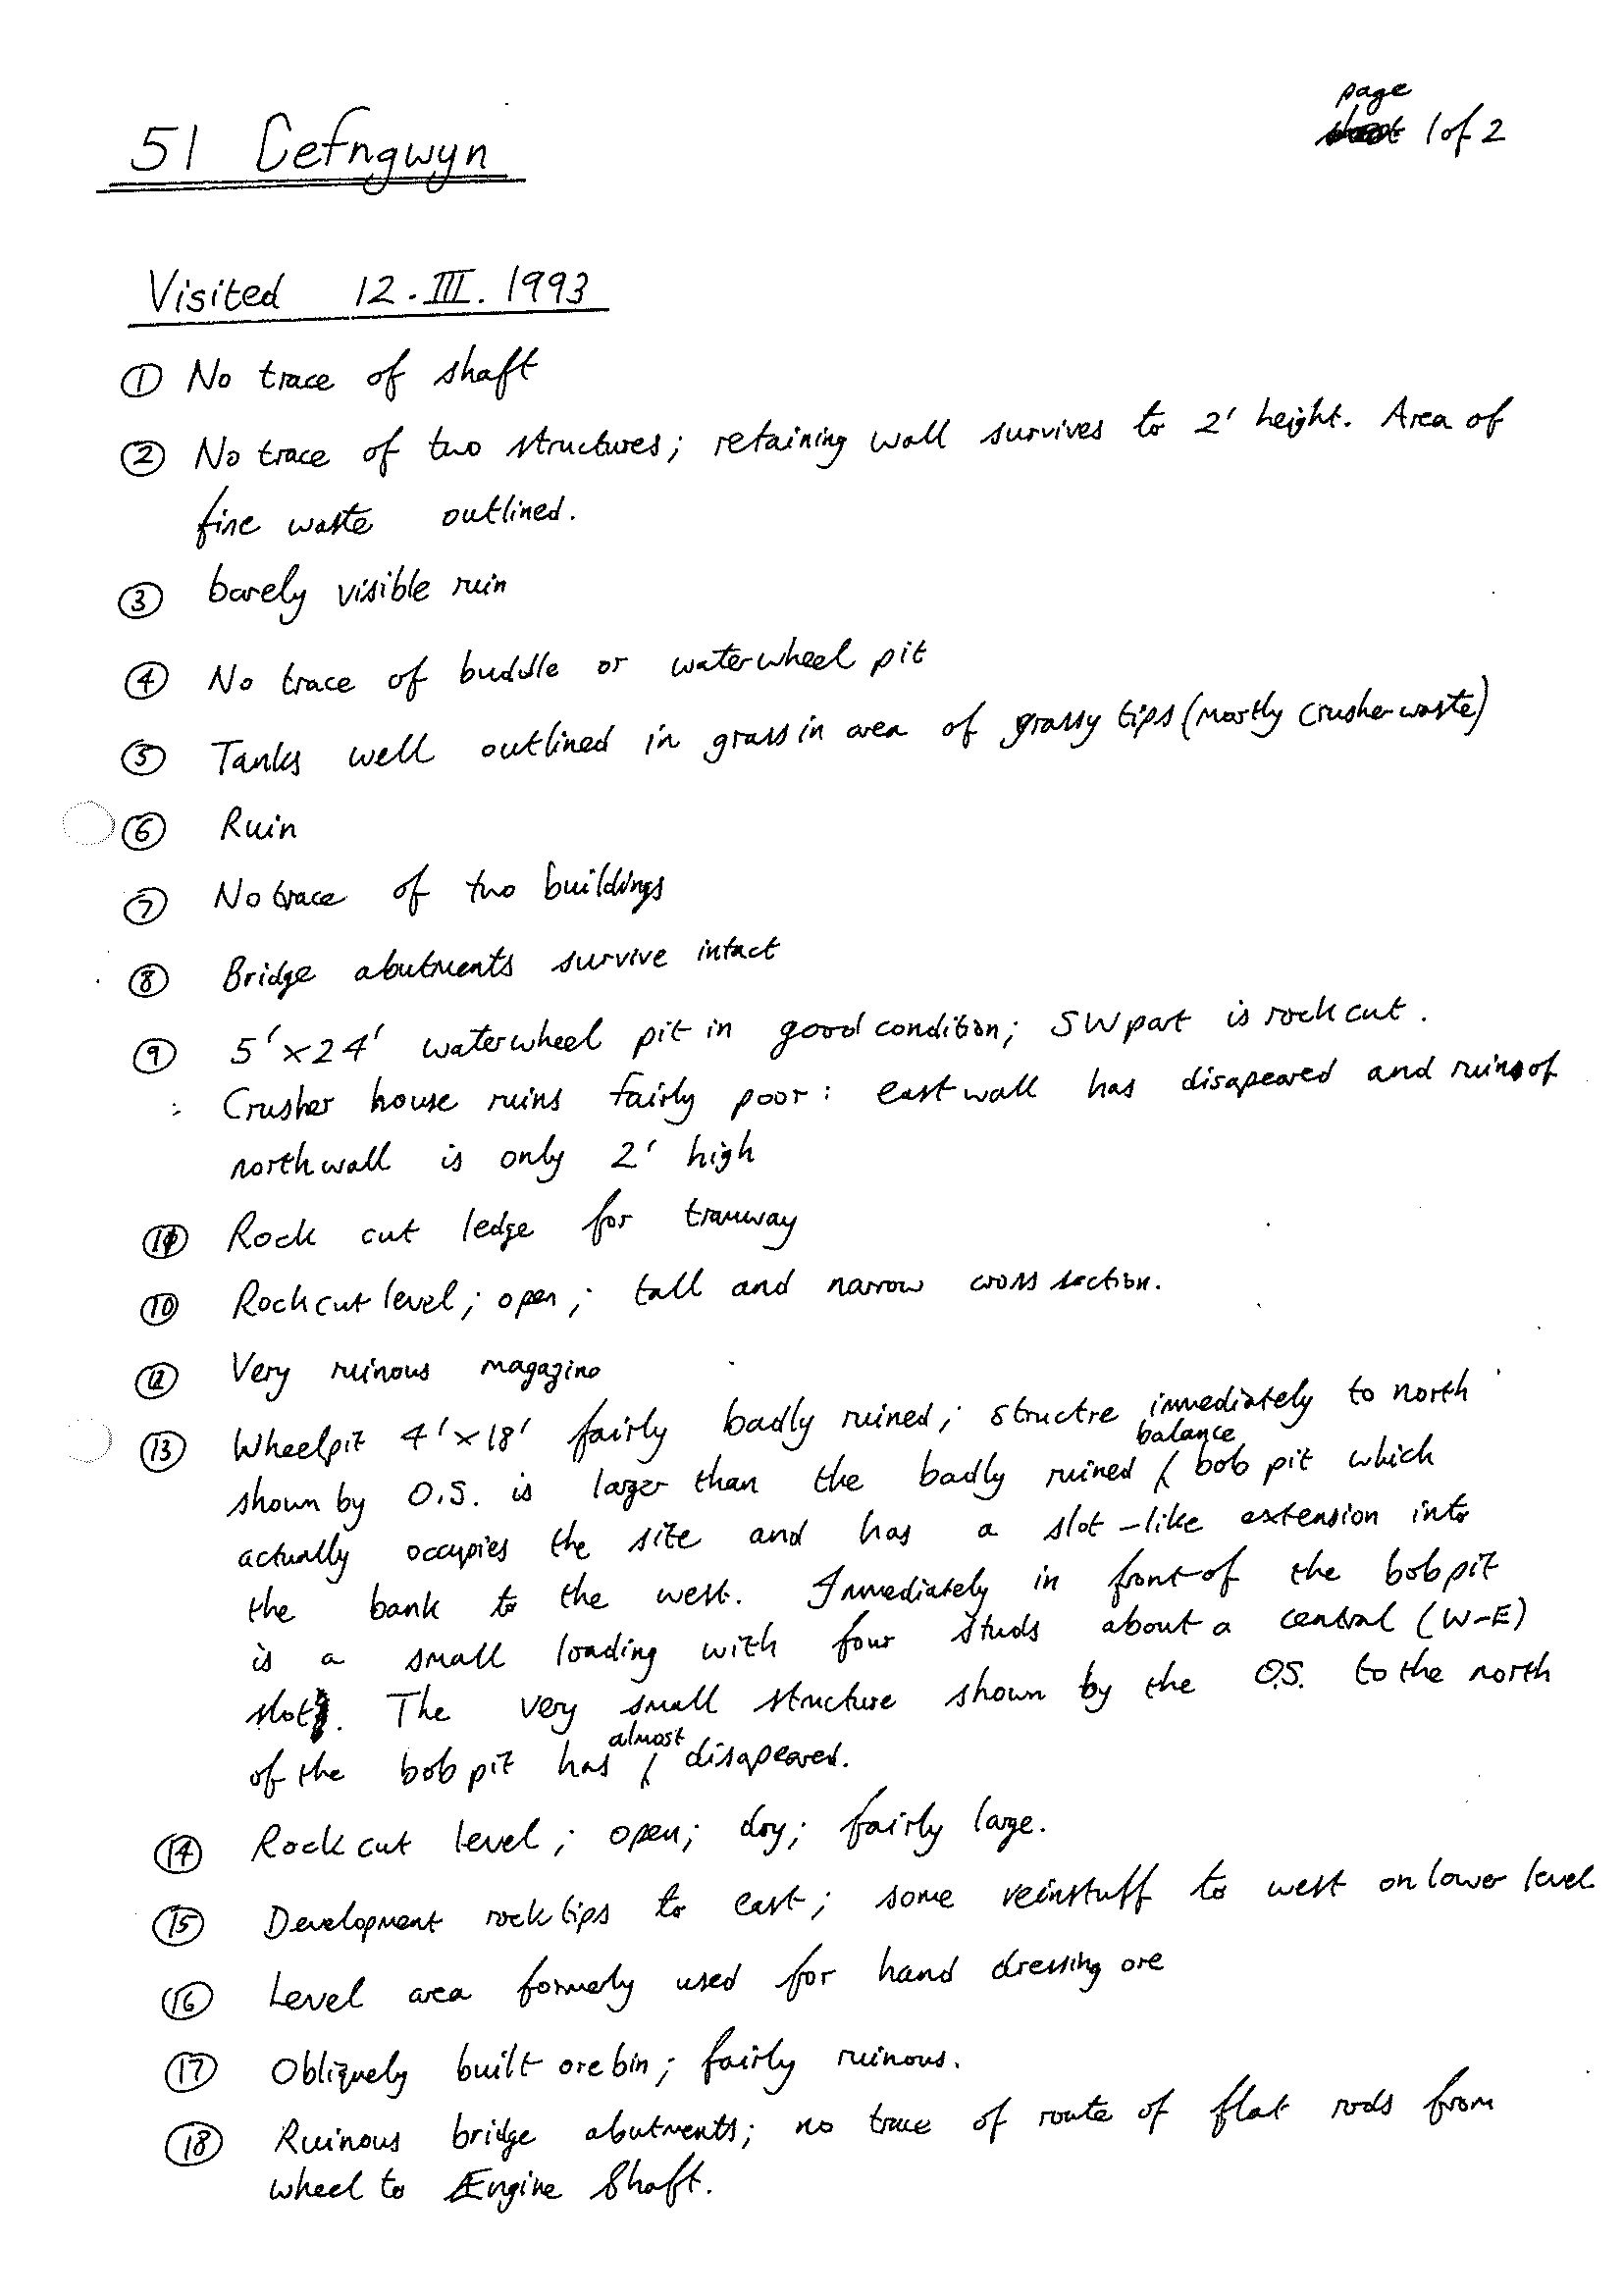 page
51 Cefngwyn 1 of 2
Visited 12.III.1993
① No trace of shaft
② No trace of two structures; retaining wall survives to 2' height. Area of
fine waste outlined.
③ barely visible ruin
④ No trace of buddle or waterwheel pit
⑤ Tanks well outlined in grass in area of grassy tips (mostly crusher waste)
⑥ Ruin
⑦ No trace of two buildings
⑧ Bridge abutments survive intact
⑨ 5' × 24' waterwheel pit in good condition; SW part is rock cut.
Crusher house ruins fairly poor: east wall has disapeared and ruins of
north wall is only 2' high
⑪ Rock cut ledge for tramway
⑩ Rock cut level; open; tall and narrow cross section.
⑫ Very ruinous magazine
⑬ Wheelpit 4' × 18' fairly badly ruined; structre immediately to north
shown by O.S. is larger than the badly ruined balance bob pit which
actually occupies the site and has a slot-like extension into
the bank to the west. Immediately in front of the bob pit
is a small loading with four studs about a central (W-E)
slot. The very small structure shown by the O.S. to the north
of the bob pit has almost disapeared.
⑭ Rock cut level; open; dry; fairly large.
⑮ Development rock tips to east; some veinstuff to west on lower level
⑯ Level area formerly used for hand dressing ore
⑰ Obliquely built ore bin; fairly ruinous.
⑱ Ruinous bridge abutments; no trace of route of flat rods from
wheel to Engine Shaft.